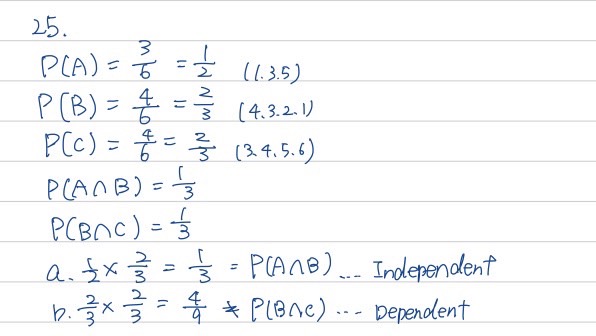 25.
P(A) = 3/6 = 1/2 (1.3.5)
P(B) = 4/6 = 2/3 (4.3.2.1)
P(C) = 4/6 = 2/3 (3.4.5.6)
P(A∩B) = 1/3
P(B∩C) = 1/3
a. 1/2 × 2/3 = 1/3 = P(A∩B) ... Independent
b. 2/3 × 2/3 = 4/9 ≠ P(B∩C) ... Dependent